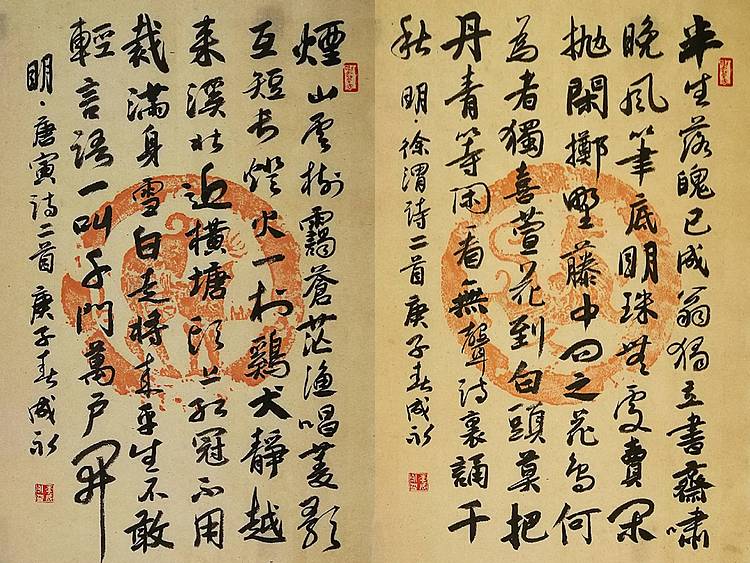 半生落魄已成翁独立書齋嘯
晚風筆底明珠無處賣閑
抛閑擲野藤中問之花鳥何
為者獨喜萱花到白頭莫把
丹青等閑看無聲詩裏誦千
秋 明·徐渭詩二首庚子春成永
煙山雲樹靄蒼茫漁唱菱影
互短長燈火一村鷄犬靜越
来溪北近橫塘頭上紅冠不用
裁滿身雪白走將来平生不敢
輕言語一叫千門萬戶開
明·唐寅詩二首庚子春成永